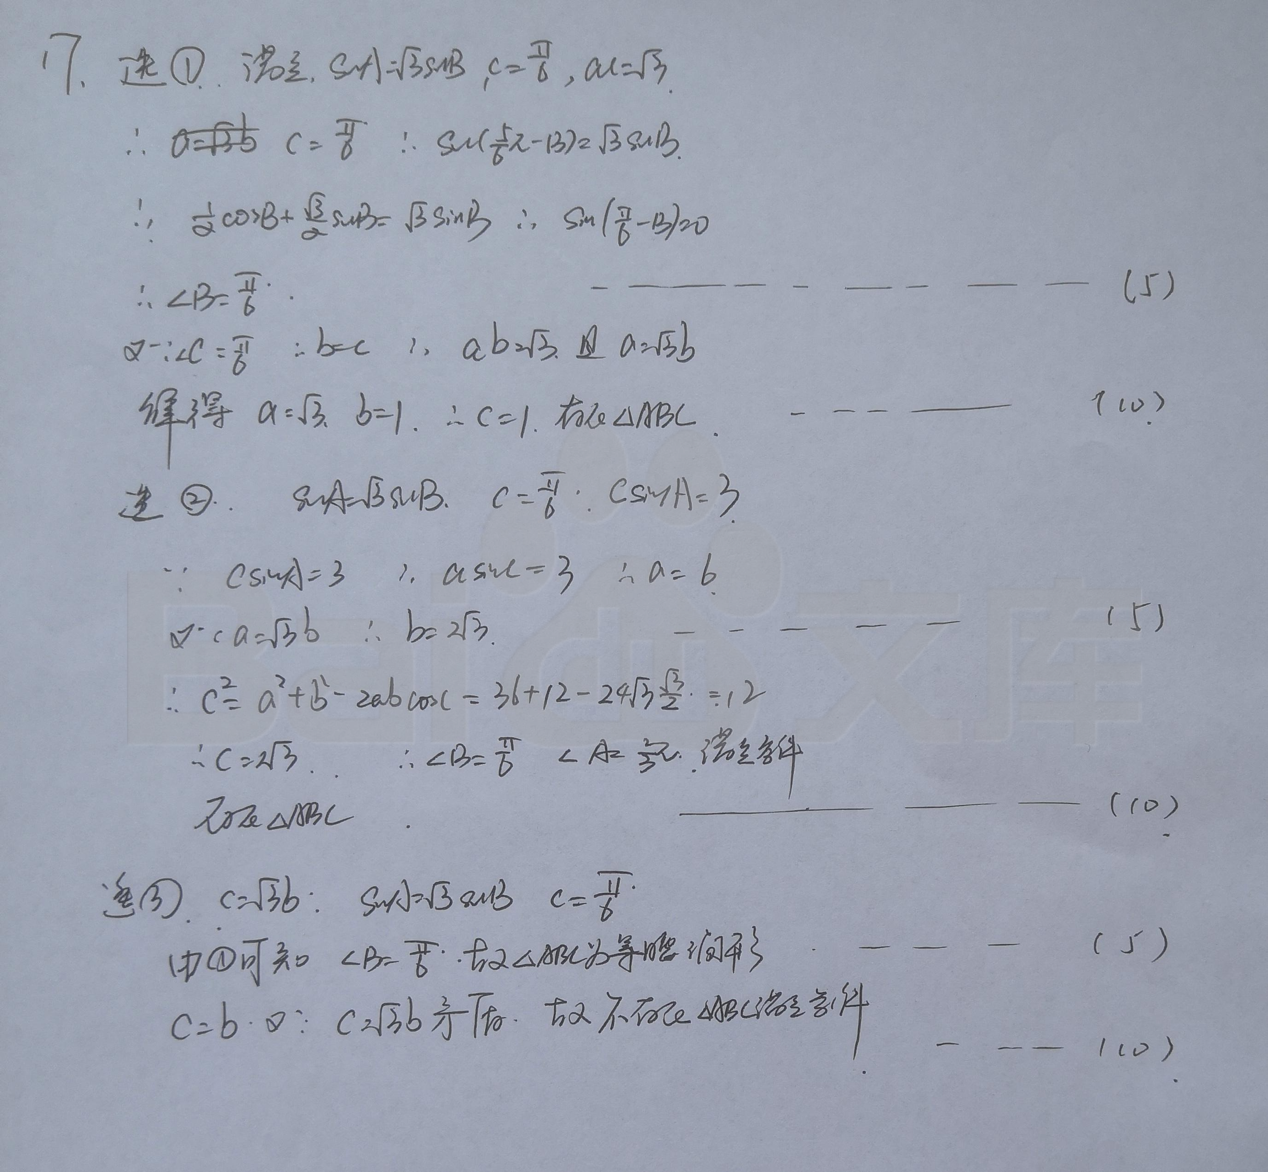 17. 选① 满足. sinA=√3sinB, C=π/6, ac=√3.
∴ a=√3b C=π/6 ∴ sin(5/6π-B)=√3sinB.
∴ 1/2cosB+√3/2sinB=√3sinB ∴ sin(π/6-B)=0
∴ ∠B=π/6. (5)
又∵∠C=π/6 ∴b=c ∴ ab=√3 且 a=√3b
解得 a=√3, b=1. ∴c=1. 存在△ABC. (10)
选②. sinA=√3sinB. C=π/6. csinA=3.
∵ csinA=3 ∴ asinC=3 ∴a=6.
又∵a=√3b ∴ b=2√3. (5)
∴ c²=a²+b²-2abcosC=36+12-24√3·√3/2=12
∴c=2√3. ∴∠B=π/6 ∠A=2/3π. 满足条件
存在△ABC. (10)
选③. c=√3b. sinA=√3sinB C=π/6.
由①可知 ∠B=π/6. 故△ABC为等腰三角形 (5)
c=b. 又∵ c=√3b 矛盾. 故不存在△ABC满足条件
(10)
Bai du 文库